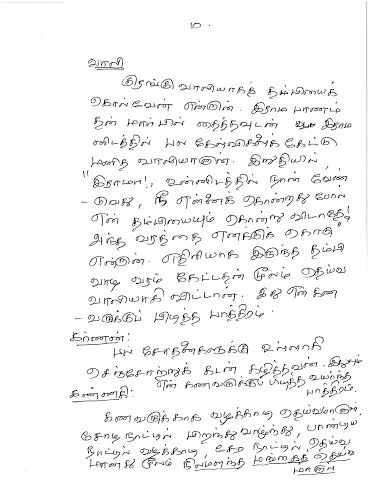 10.
வாலி
குரங்கு வாலியாகத் தம்பியைக்
கொல்வேன் என்றான். இராம பாணம்
தன் மார்பில் தைத்தவுடன் இராம
னிடத்தில் பல கேள்விகளைக் கேட்டு
மனித வாலியானான். இறுதியில்,
"இராமா!, உன்னிடத்தில் நான் வேண்
- டுவது, நீ என்னைக் கொன்றது போல்
என் தம்பியையும் கொன்று விடாதே!
அந்த வரத்தை எனக்குக் கொடு"
என்றான். எதிரியாக இருந்த தம்பி
வாழ வரம் கேட்டதன் மூலம் தெய்வ
வாலியாகி விட்டான். இது என் கண
- வருக்குப் பிடித்த பாத்திரம்.
கர்ணன்:
பல சோதனைகளுக்கு உள்ளாகி
செஞ்சோற்றுக் கடன் கழித்தவன். இதுவும்
என் கணவருக்குப் பிடித்த உயர்ந்த
பாத்திரம்.
கண்ணகி:
கணவருக்காக வழக்காடி தெய்வமானாள்.
சோழ நாட்டில் பிறந்து வாழ்ந்து, பாண்டிய
நாட்டில் வழக்காடி, சேர நாட்டில் தெய்வ
மானது மூலம் நிலமளந்த மங்கைத் தெய்வ
மானாள்